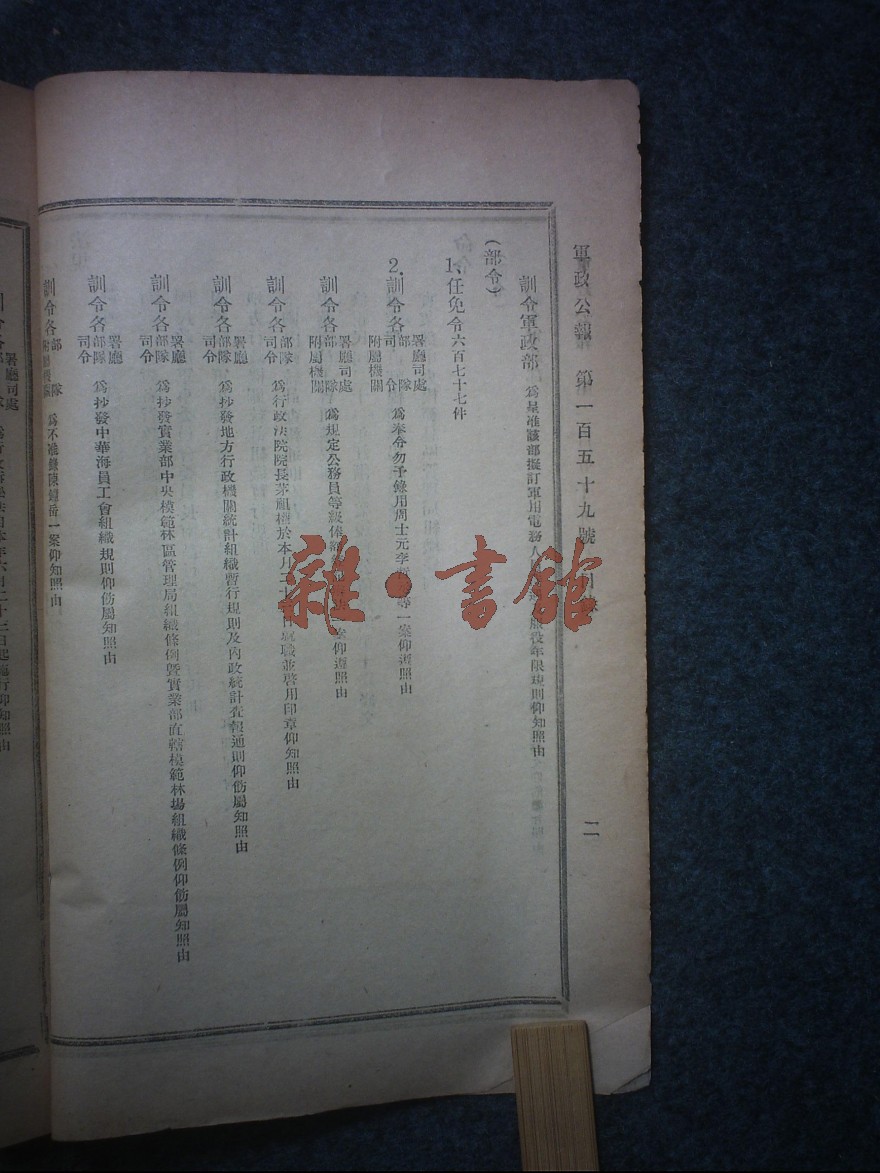 軍政公報 第一百五十九號 目錄 二
訓令軍政部 為呈准該部擬訂軍用電務人 服役年限規則仰知照由
(部令)
1、任免令六百七十七件
2、訓令各署廳司處部隊司令附屬機關 為奉令勿予錄用周士元李 等一案仰遵照由
訓令各署廳司處部隊附屬機關 為規定公務員等級俸 案仰遵照由
訓令各部隊司令 為行政法院院長茅祖權於本月二十 日 就職並啓用印章仰知照由
訓令各署廳部隊司令 為抄發地方行政機關統計組織暫行規則及內政統計查報通則仰飭屬知照由
訓令各署廳部隊司令 為抄發實業部中央模範林區管理局組織條例暨實業部直轄模範林場組織條例仰飭屬知照由
訓令各署廳部隊司令 為抄發中華海員工會組織規則仰飭屬知照由
訓令各部隊 為不 陳 一案仰知照由
訓令各署廳司處部隊 本年六月二十三日起施行仰知照由
雜·書館